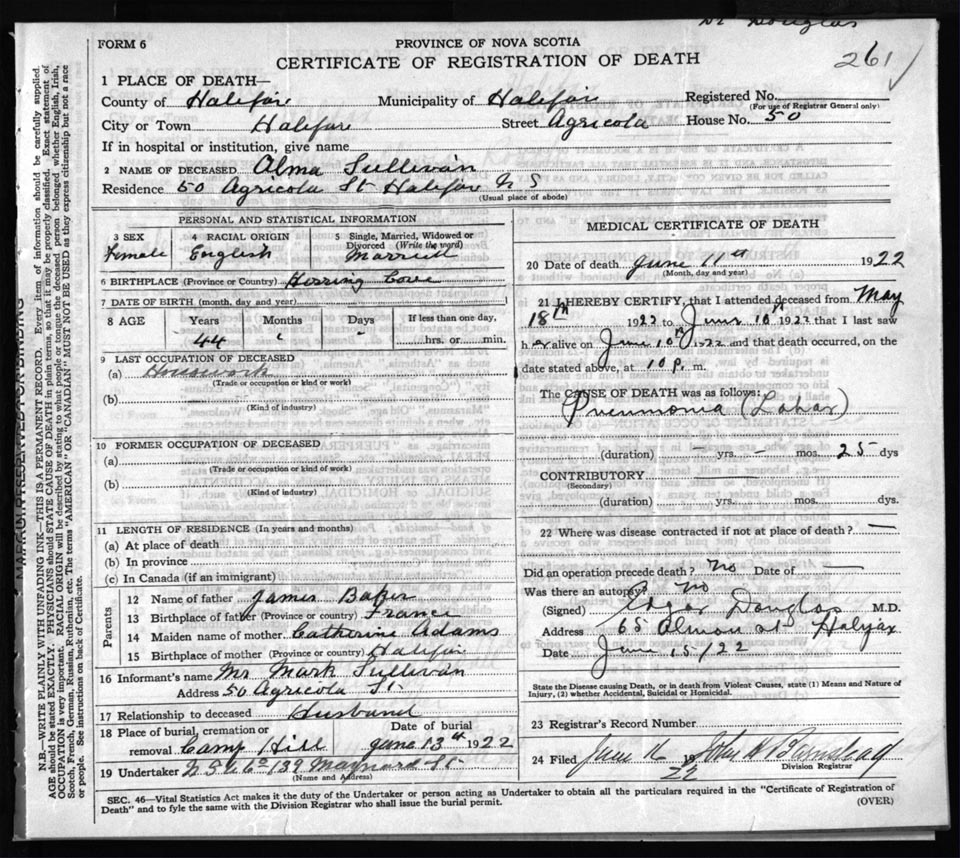 Dr Douglas
261 ✓
FORM 6
PROVINCE OF NOVA SCOTIA
CERTIFICATE OF REGISTRATION OF DEATH
1 PLACE OF DEATH—
County of Halifax Municipality of Halifax Registered No.
(For use of Registrar General only)
City or Town Halifax Street Agricola House No. 50
If in hospital or institution, give name
2 NAME OF DECEASED Alma Sullivan
Residence 50 Agricola St Halifax N S
(Usual place of abode)
PERSONAL AND STATISTICAL INFORMATION
3 SEX 4 RACIAL ORIGIN 5 Single, Married, Widowed or Divorced (Write the word)
Female English Married
6 BIRTHPLACE (Province or Country) Herring Cove
7 DATE OF BIRTH (month, day and year)
8 AGE Years Months Days If less than one day,
44 hrs. or min.
9 LAST OCCUPATION OF DECEASED
(a) Housework
(Trade or occupation or kind or work)
(b)
(Kind of industry)
10 FORMER OCCUPATION OF DECEASED
(a)
(Trade or occupation or kind or work)
(b)
(Kind of industry)
11 LENGTH OF RESIDENCE (In years and months)
(a) At place of death
(b) In province
(c) In Canada (if an immigrant)
Parents
12 Name of father James Baker
13 Birthplace of father (Province or country) France
14 Maiden name of mother Catherine Adams
15 Birthplace of mother (Province or country) Halifax
16 Informant's name Mr Mark Sullivan
Address 50 Agricola St
17 Relationship to deceased Husband
18 Place of burial, cremation or removal Camp Hill Date of burial June 13th 1922
19 Undertaker N S U Co 139 Maynard St
(Name and Address)
MEDICAL CERTIFICATE OF DEATH
20 Date of death June 11th 1922
(Month, day and year)
21 I HEREBY CERTIFY, that I attended deceased from May
18th 1922 to June 10th 1922 that I last saw
her alive on June 10th 1922 and that death occurred, on the
date stated above, at 10 p. m.
The CAUSE OF DEATH was as follows:
Pneumonia (Lobar)
(duration) — yrs. — mos. 25 dys
CONTRIBUTORY
(Secondary)
(duration) yrs. mos. dys.
22 Where was disease contracted if not at place of death? —
Did an operation precede death? No Date of —
Was there an autopsy? No
(Signed) Edgar Douglas M.D.
Address 65 Almon st Halifax
Date June 15/22
State the Disease causing Death, or in death from Violent Causes, state (1) Means and Nature of
Injury, (2) whether Accidental, Suicidal or Homicidal.
23 Registrar's Record Number
24 Filed June 16 1922 John H Barnstead
Division Registrar
SEC. 46—Vital Statistics Act makes it the duty of the Undertaker or person acting as Undertaker to obtain all the particulars required in the "Certificate of Registration of
Death" and to fyle the same with the Division Registrar who shall issue the burial permit.
(OVER)
MARGIN RESERVED FOR BINDING
N.B.—WRITE PLAINLY WITH UNFADING INK—THIS IS A PERMANENT RECORD. Every item of information should be carefully supplied.
AGE should be stated EXACTLY. PHYSICIANS should STATE CAUSE OF DEATH in plain terms, so that it may be properly classified. Exact statement of
OCCUPATION is very important. RACIAL ORIGIN will be described by stating to what people or tongue the deceased person belonged whether English, Irish,
Scotch, French, German, Russian, Ruthenian, etc. The terms "AMERICAN" OR "CANADIAN" MUST NOT BE USED as they express citizenship but not a race
or people. See instructions on back of Certificate.